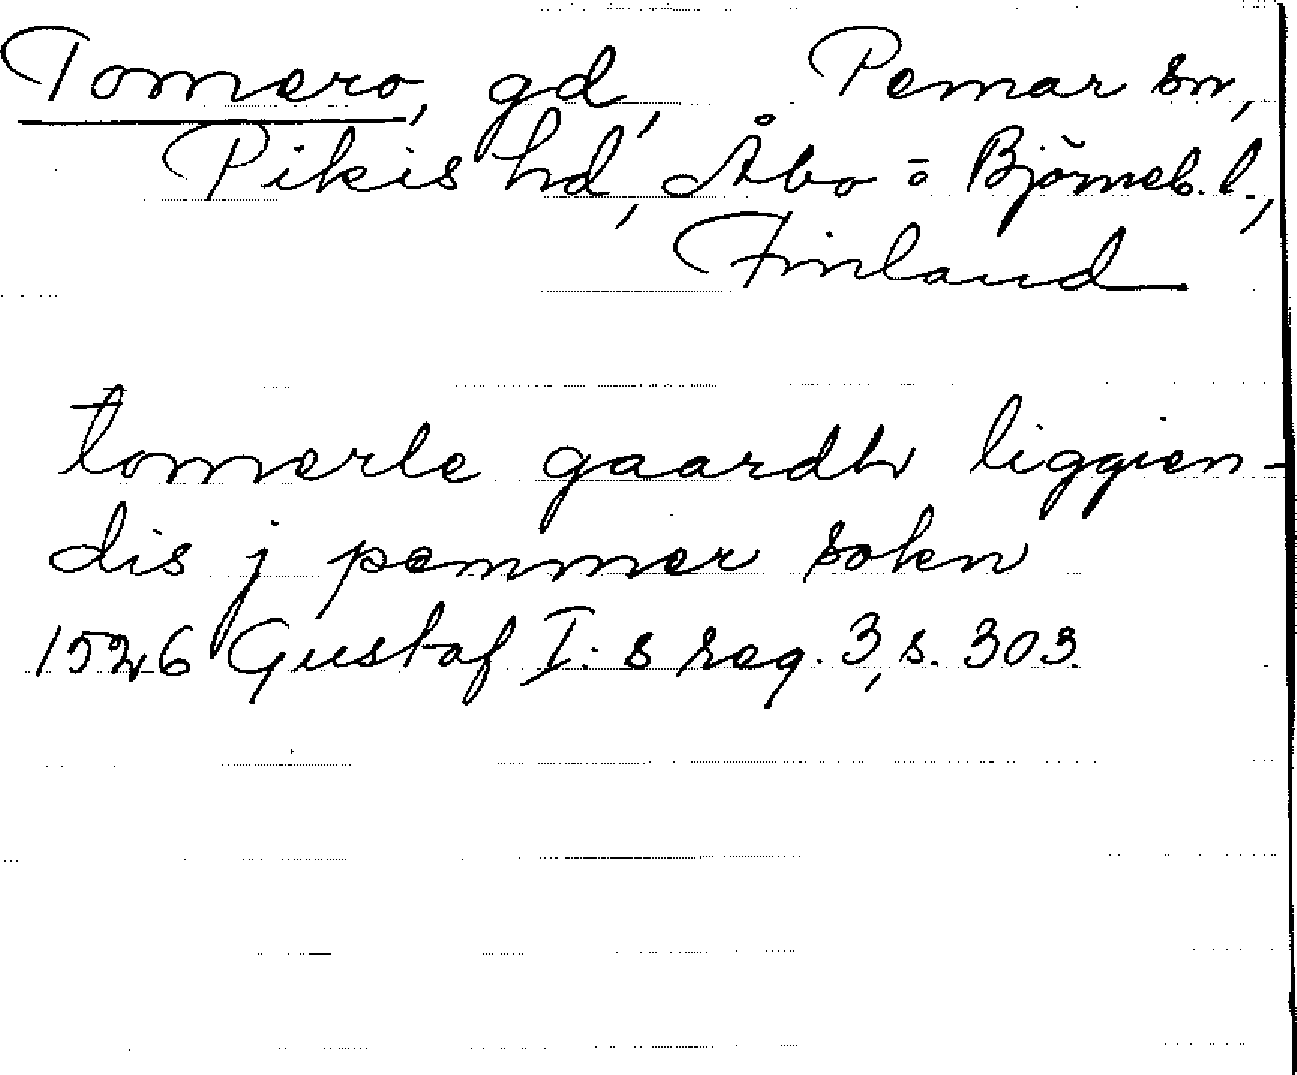 Tomero, gd, Pemar sn,
Pikis hd, Åbo = Björneb. l.,
Finland
tomerle gaardh liggien-
dis j pemmer sokn
1526 Gustaf I:s reg. 3, s. 303.